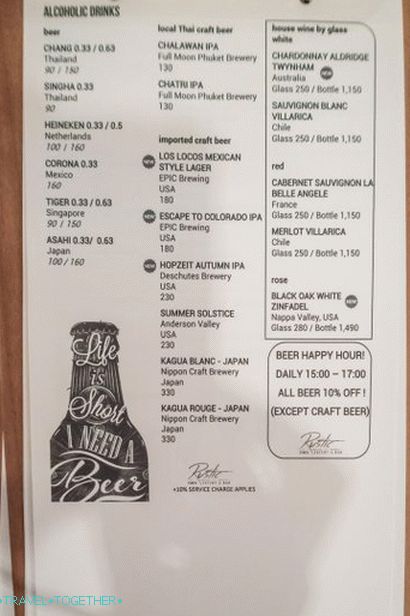 ALCOHOLIC DRINKS
beer
CHANG 0.33 / 0.63
Thailand
90 / 150
SINGHA 0.33
Thailand
90
HEINEKEN 0.33 / 0.5
Netherlands
100 / 160
CORONA 0.33
Mexico
160
TIGER 0.33 / 0.63
Singapore
90 / 150
ASAHI 0.33/ 0.63
Japan
100 / 160
Life
is
Short
I NEED A
Beer
local Thai craft beer
CHALAWAN IPA
Full Moon Phuket Brewery
130
CHATRI IPA
Full Moon Phuket Brewery
130
imported craft beer
NEW
LOS LOCOS MEXICAN
STYLE LAGER
EPIC Brewing
USA
180
NEW
ESCAPE TO COLORADO IPA
EPIC Brewing
USA
180
NEW
HOPZEIT AUTUMN IPA
Deschutes Brewery
USA
230
SUMMER SOLSTICE
Anderson Valley
USA
230
KAGUA BLANC - JAPAN
Nippon Craft Brewery
Japan
330
KAGUA ROUGE - JAPAN
Nippon Craft Brewery
Japan
330
Rustic
+10% SERVICE CHARGE APPLIES
house wine by glass
white
CHARDONNAY ALDRIDGE
TWYNHAM NEW
Australia
Glass 250 / Bottle 1,150
SAUVIGNON BLANC
VILLARICA
Chile
Glass 250 / Bottle 1,150
red
CABERNET SAUVIGNON LA
BELLE ANGELE
France
Glass 250 / Bottle 1,150
MERLOT VILLARICA
Chile
Glass 250 / Bottle 1,150
rose
BLACK OAK WHITE
ZINFADEL NEW
Nappa Valley, USA
Glass 280 / Bottle 1,490
BEER HAPPY HOUR!
DAILY 15:00 – 17:00
ALL BEER 10% OFF !
(EXCEPT CRAFT BEER)
Rustic
TRAVEL TOGETHER